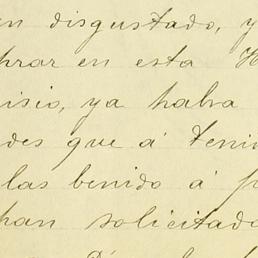 en disgustado, y
prar en esta H
isio, ya habra
des que á teni
las benido á p
han solicitado